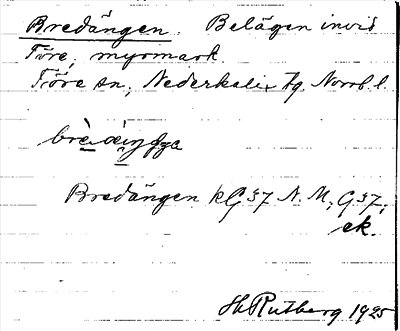 Bredängen. Belägen invid
Töre, myrmark.
Töre sn, Nederkalix tg. Norrb. l.
Bredängen kG 37 N. M; G 37;
ek.
H Rutberg 1925